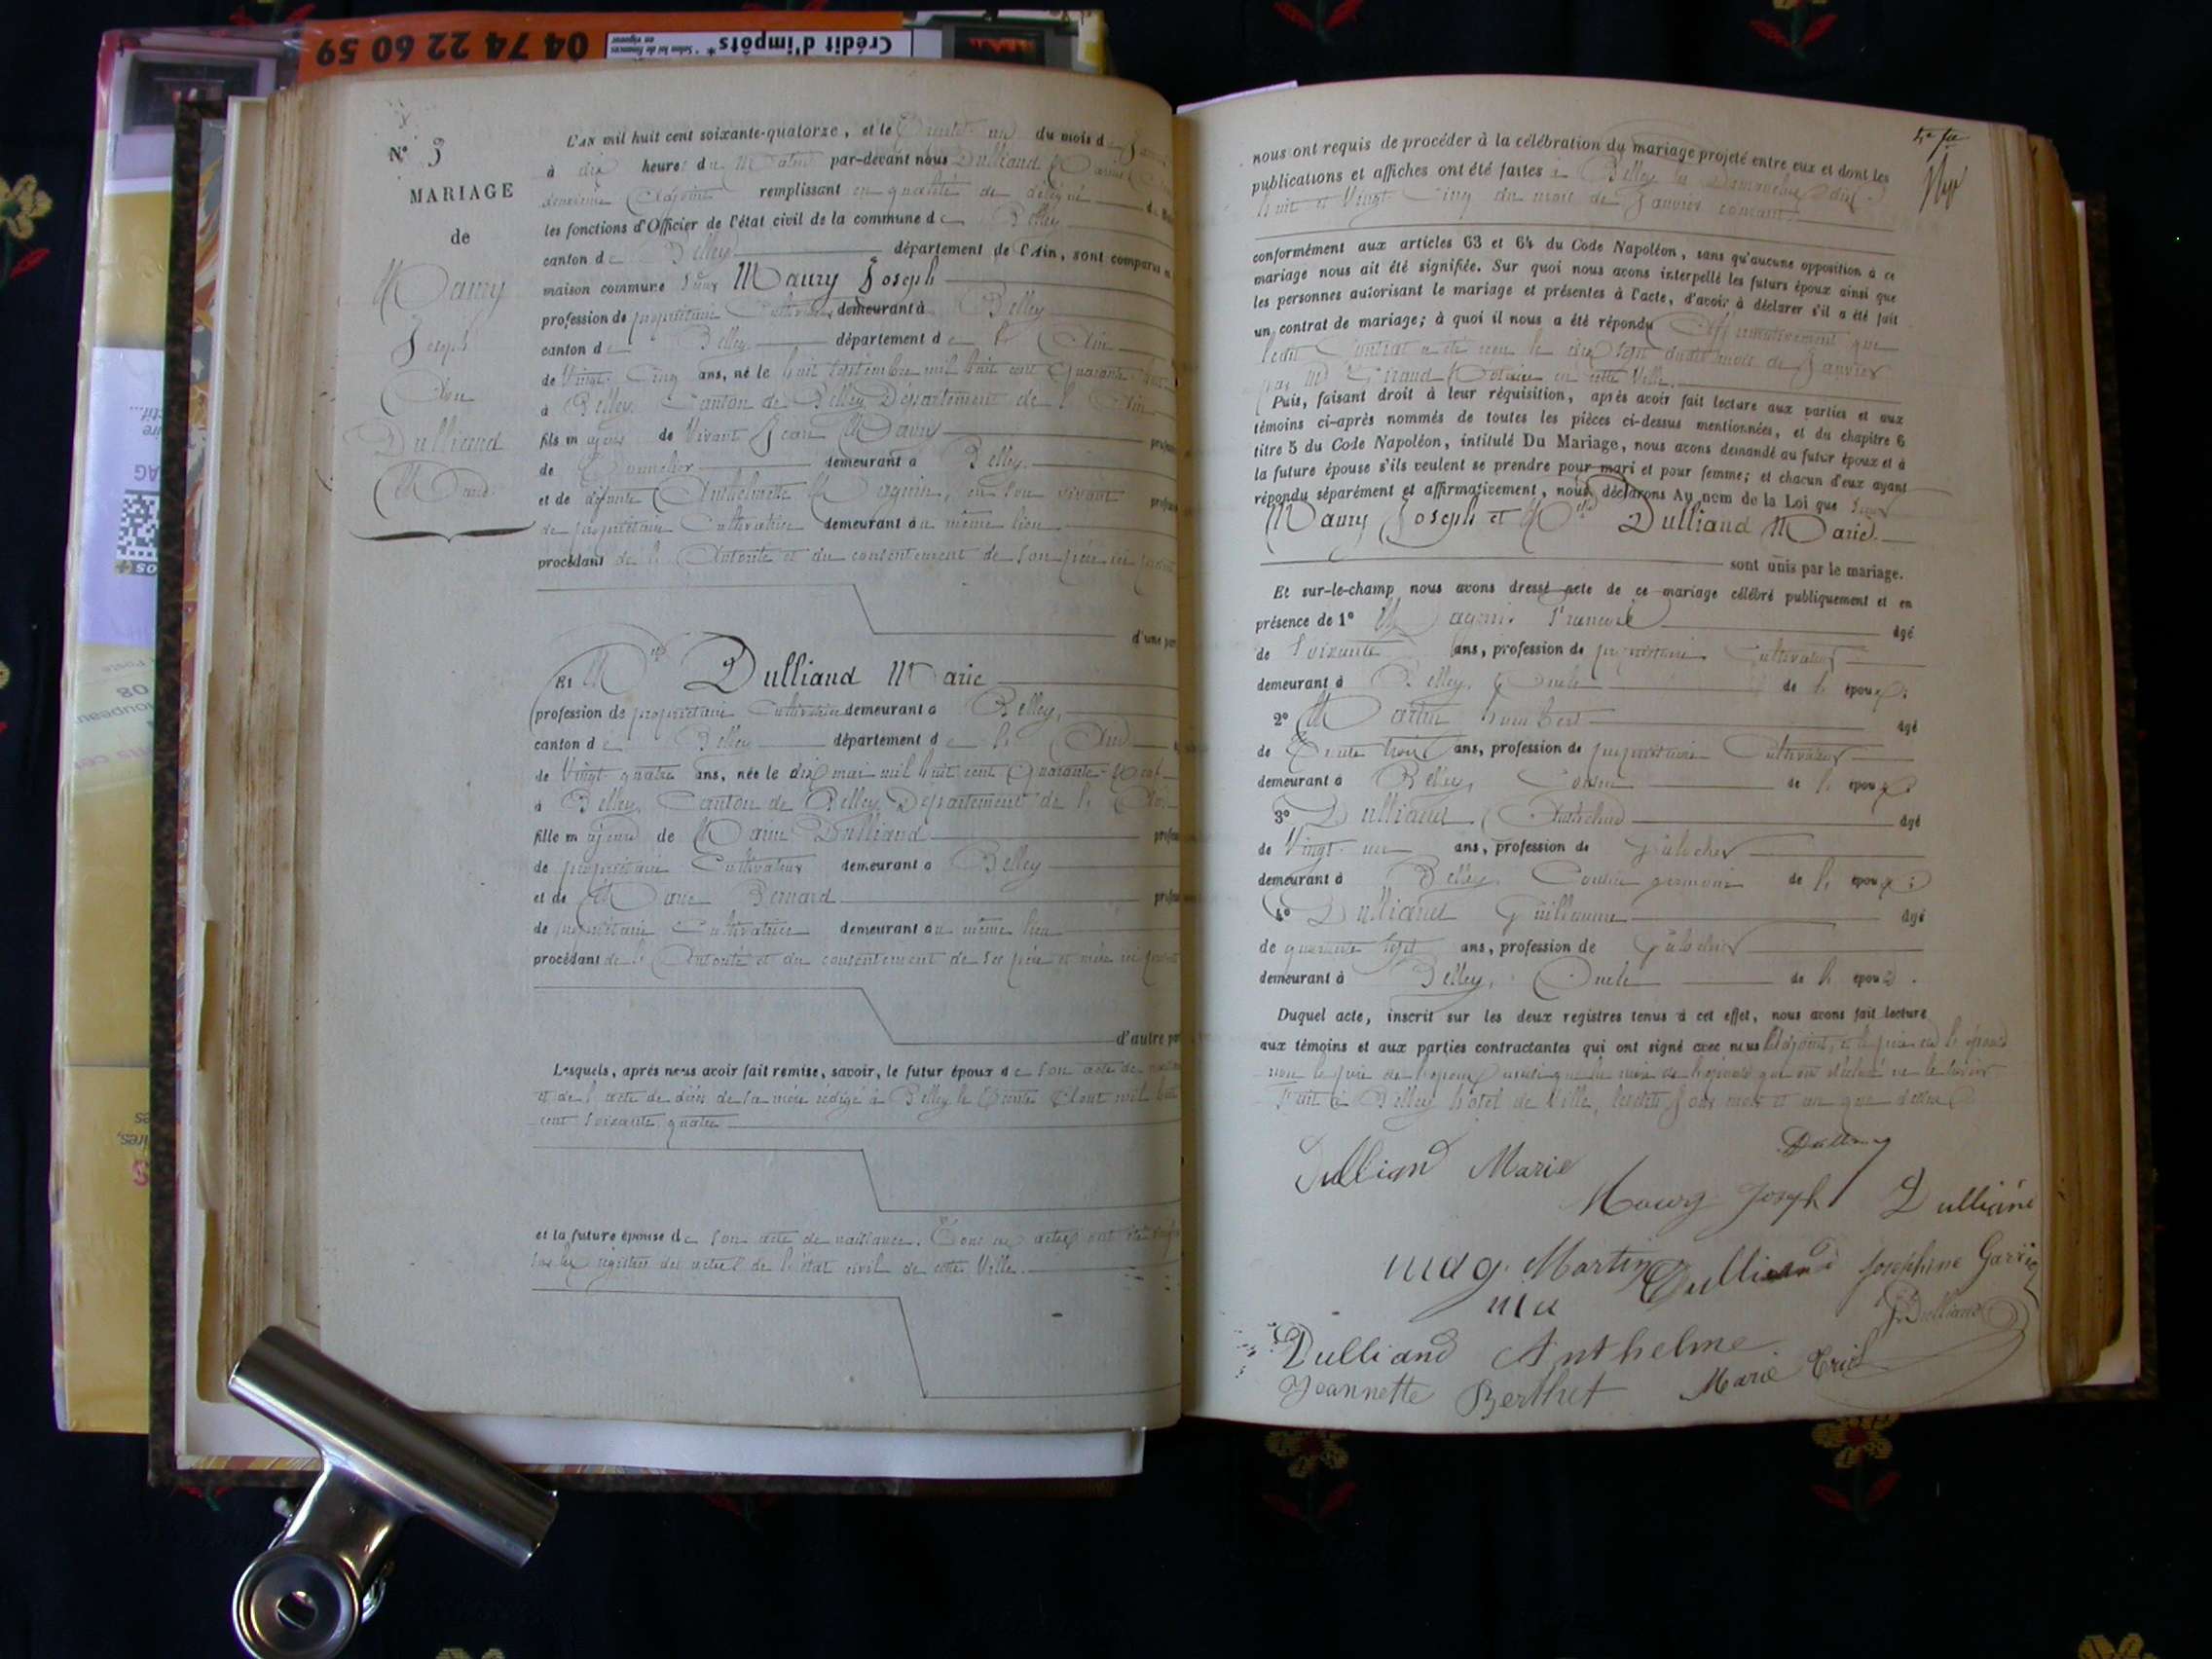 04 74 22 60 59
Crédit d'impôts*
N° 9
MARIAGE
de
Maury
Joseph
Avec
Dulliand
Marie
L'AN mil huit cent soixante-quatorze, et le Trente un du mois de
à dix heures du Matin par-devant nous Dulliand
deuxième Adjoint remplissant en qualité de délégué
les fonctions d'Officier de l'état civil de la commune de Belley
canton de Belley département de l'Ain, sont comparus en
maison commune Sieur Maury Joseph
profession de propriétaire Cultivateur demeurant à Belley
canton de Belley département de l'Ain
de Vingt Cinq ans, né le huit Septembre mil huit cent Quarante huit
à Belley Canton de Belley Département de l'Ain
fils majeur de Vivant Jean Maury
de Tonnelier demeurant à Belley
et de défunte Anthelmette Magnin, en son vivant
de propriétaire Cultivatrice demeurant au même lieu
procédant de l'Autorité et du consentement de son père ici présent
d'une part
Et Mlle Dulliand Marie
profession de propriétaire Cultivatrice demeurant à Belley,
canton de Belley département de l'Ain
de Vingt quatre ans, née le dix mai mil huit cent Quarante-Neuf
à Belley, Canton de Belley, Département de l'Ain
fille majeure de Dulliand
de propriétaire Cultivateur demeurant à Belley
et de Marie Bernard
de propriétaire Cultivatrice demeurant au même lieu
procédant de l'Autorité et du consentement de ses père et mère ici présents
d'autre part
Lesquels, après nous avoir fait remise, savoir, le futur époux de son acte de
et de l'acte de décès de sa mère rédigé à Belley le Trente Aout mil huit
cent soixante quatre
et la future épouse de son acte de naissance. Tous ces actes ont été
sur les registres des actes de l'état civil de cette Ville.
nous ont requis de procéder à la célébration du mariage projeté entre eux et dont les
publications et affiches ont été faites à Belley les Dimanches dix
huit et Vingt Cinq du mois de Janvier courant
conformément aux articles 63 et 64 du Code Napoléon, sans qu'aucune opposition à ce
mariage nous ait été signifiée. Sur quoi nous avons interpellé les futurs époux ainsi que
les personnes autorisant le mariage et présentes à l'acte, d'avoir à déclarer s'il a été fait
un contrat de mariage; à quoi il nous a été répondu Affirmativement que
ledit Contrat a été reçu le dix sept dudit mois de Janvier
par Me Giraud Notaire en cette Ville.
Puis, faisant droit à leur réquisition, après avoir fait lecture aux parties et aux
témoins ci-après nommés de toutes les pièces ci-dessus mentionnées, et du chapitre 6
titre 5 du Code Napoléon, intitulé Du Mariage, nous avons demandé au futur époux et à
la future épouse s'ils veulent se prendre pour mari et pour femme; et chacun d'eux ayant
répondu séparément et affirmativement, nous déclarons Au nom de la Loi que Sieur
Maury Joseph et Mlle Dulliand Marie
sont unis par le mariage.
Et sur-le-champ nous avons dressé acte de ce mariage célébré publiquement et en
présence de 1° Magnin François âgé
de Soixante ans, profession de propriétaire Cultivateur
demeurant à Belley, Oncle de l'époux;
2° Martin Humbert âgé
de Trente trois ans, profession de propriétaire Cultivateur
demeurant à Belley, Cousin de l'époux;
3° Dulliand Anthelme âgé
de Vingt un ans, profession de
demeurant à Belley, Cousin germain de l'épouse;
4° Dulliand Guillaume âgé
de quarante sept ans, profession de
demeurant à Belley, Oncle de l'épouse.
Duquel acte, inscrit sur les deux registres tenus à cet effet, nous avons fait lecture
aux témoins et aux parties contractantes qui ont signé avec nous Adjoint, et le père de l'épouse
non le père de l'époux ainsi que la mère de l'épouse qui ont déclaré ne le savoir
Fait à Belley hôtel de Ville, lesdits Jour mois et an que dessus
Dulliand Marie
Maury Joseph Dulliand
mag Martin Dulliand Joséphine
Dulliand
Dulliand Anthelme
Jeannette Berthet Marie